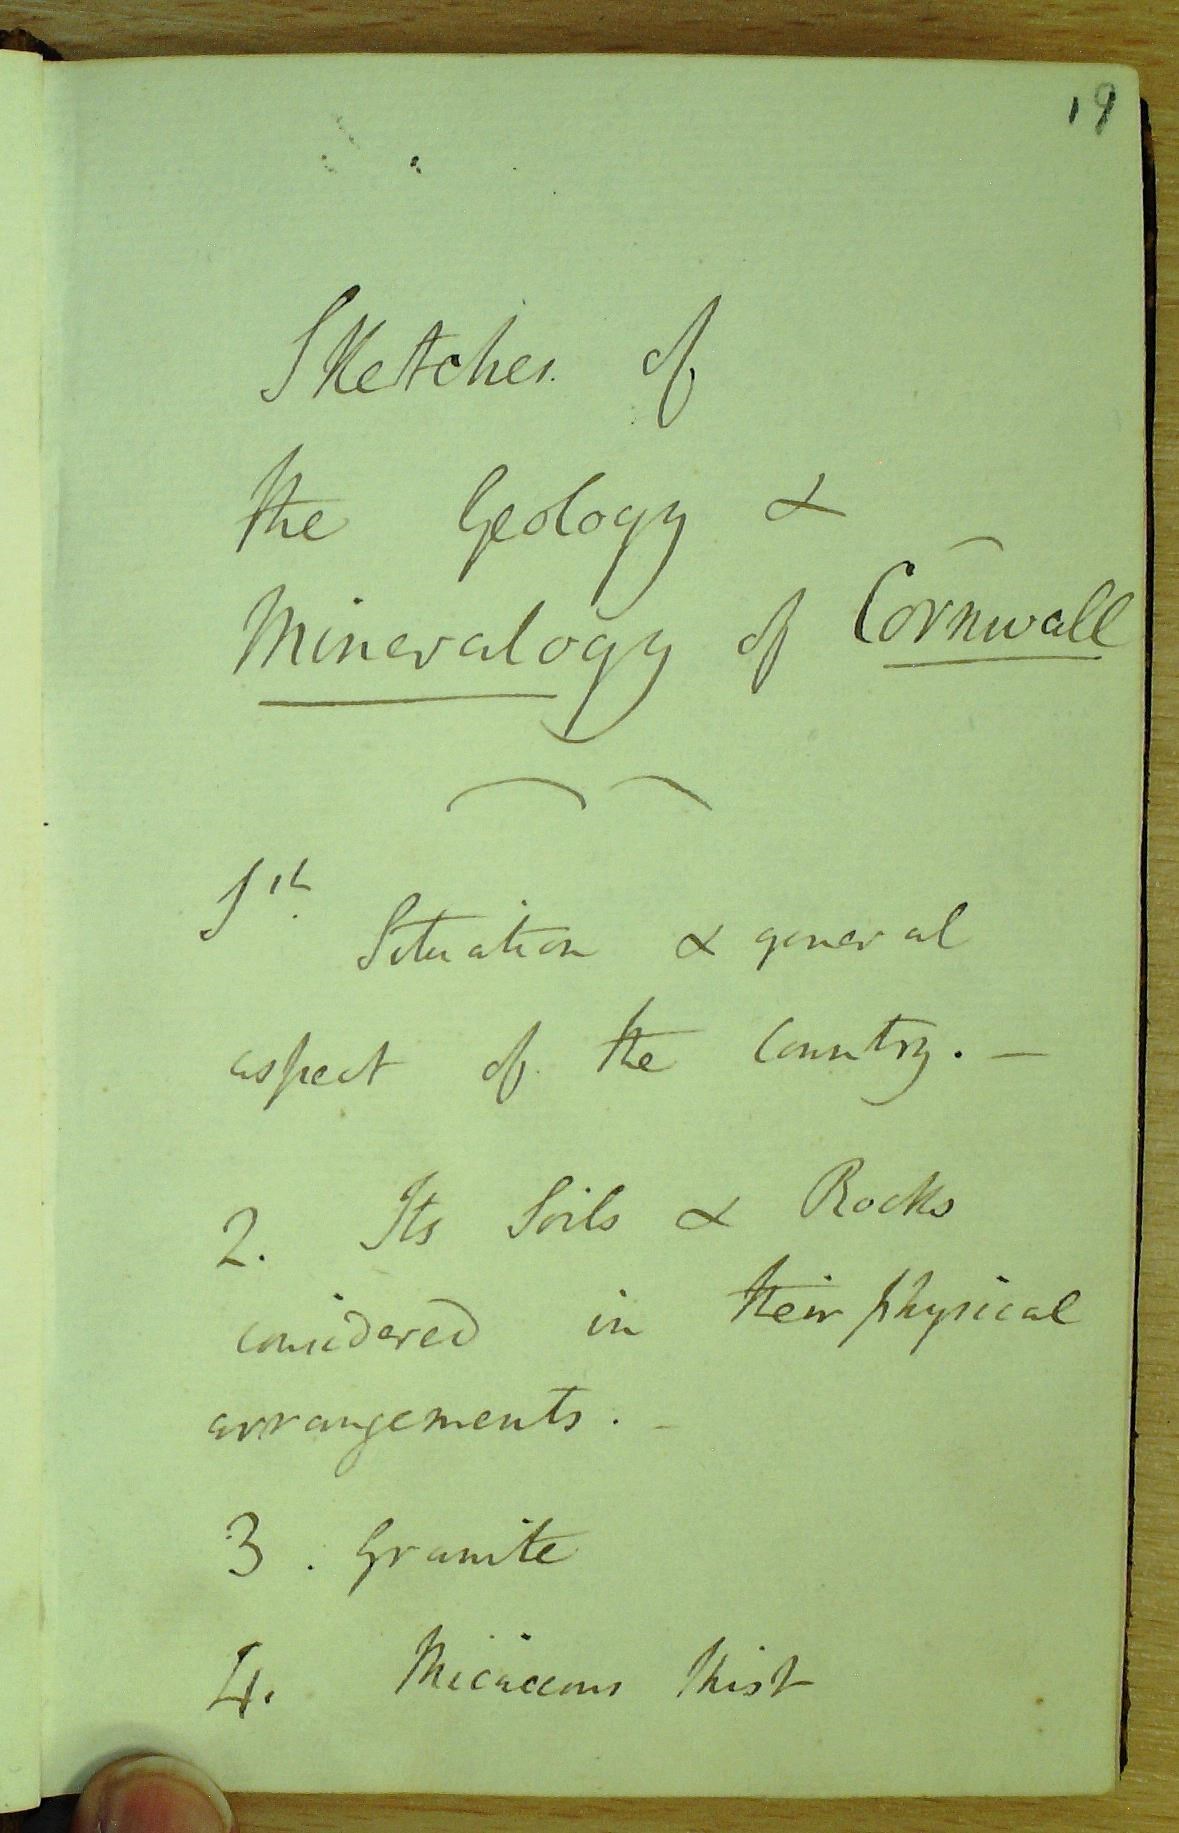 19
Sketches of
the Geology &
Mineralogy of Cornwall
1st.
Situation & general
aspect of the Country. —
2. Its Soils & Rocks
considered in their physical
arrangements. -
3. Granite
4. Micaceous Shist